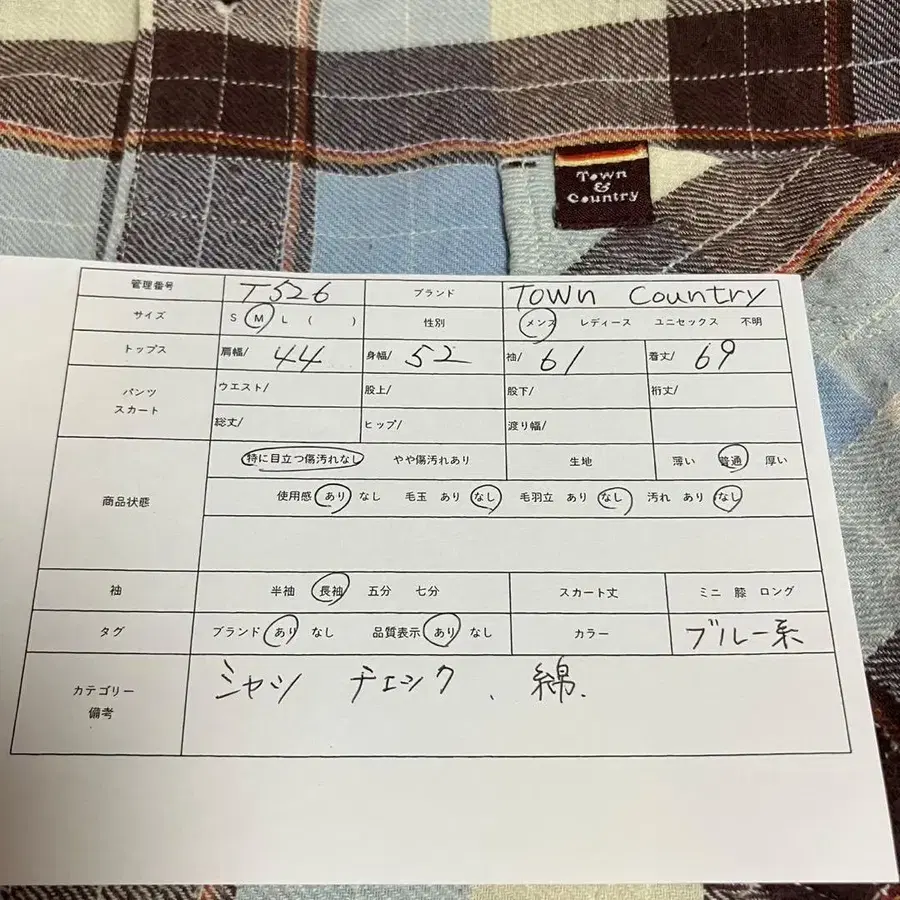 Town
&
Country
管理番号 T526 ブランド TOWN Country
サイズ S M L ( ) 性別 メンズ レディース ユニセックス 不明
トップス 肩幅/ 44 身幅/ 52 袖/ 61 着丈/ 69
パンツ
スカート
ウエスト/ 股上/ 股下/ 裄丈/
総丈/ ヒップ/ 渡り幅/
商品状態
特に目立つ傷汚れなし やや傷汚れあり 生地 薄い 普通 厚い
使用感 あり なし 毛玉 あり なし 毛羽立 あり なし 汚れ あり なし
袖 半袖 長袖 五分 七分 スカート丈 ミニ 膝 ロング
タグ ブランド あり なし 品質表示 あり なし カラー ブルー系
カテゴリー
備考
シャツ チェック、綿.